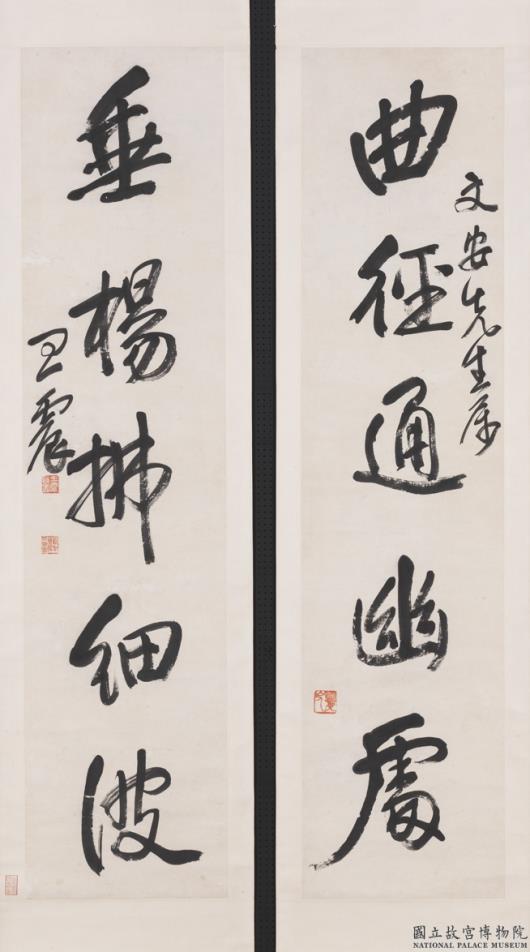 文安先生属
曲徑通幽處
垂楊拂細波
王震
國立故宮博物院
NATIONAL PALACE MUSEUM